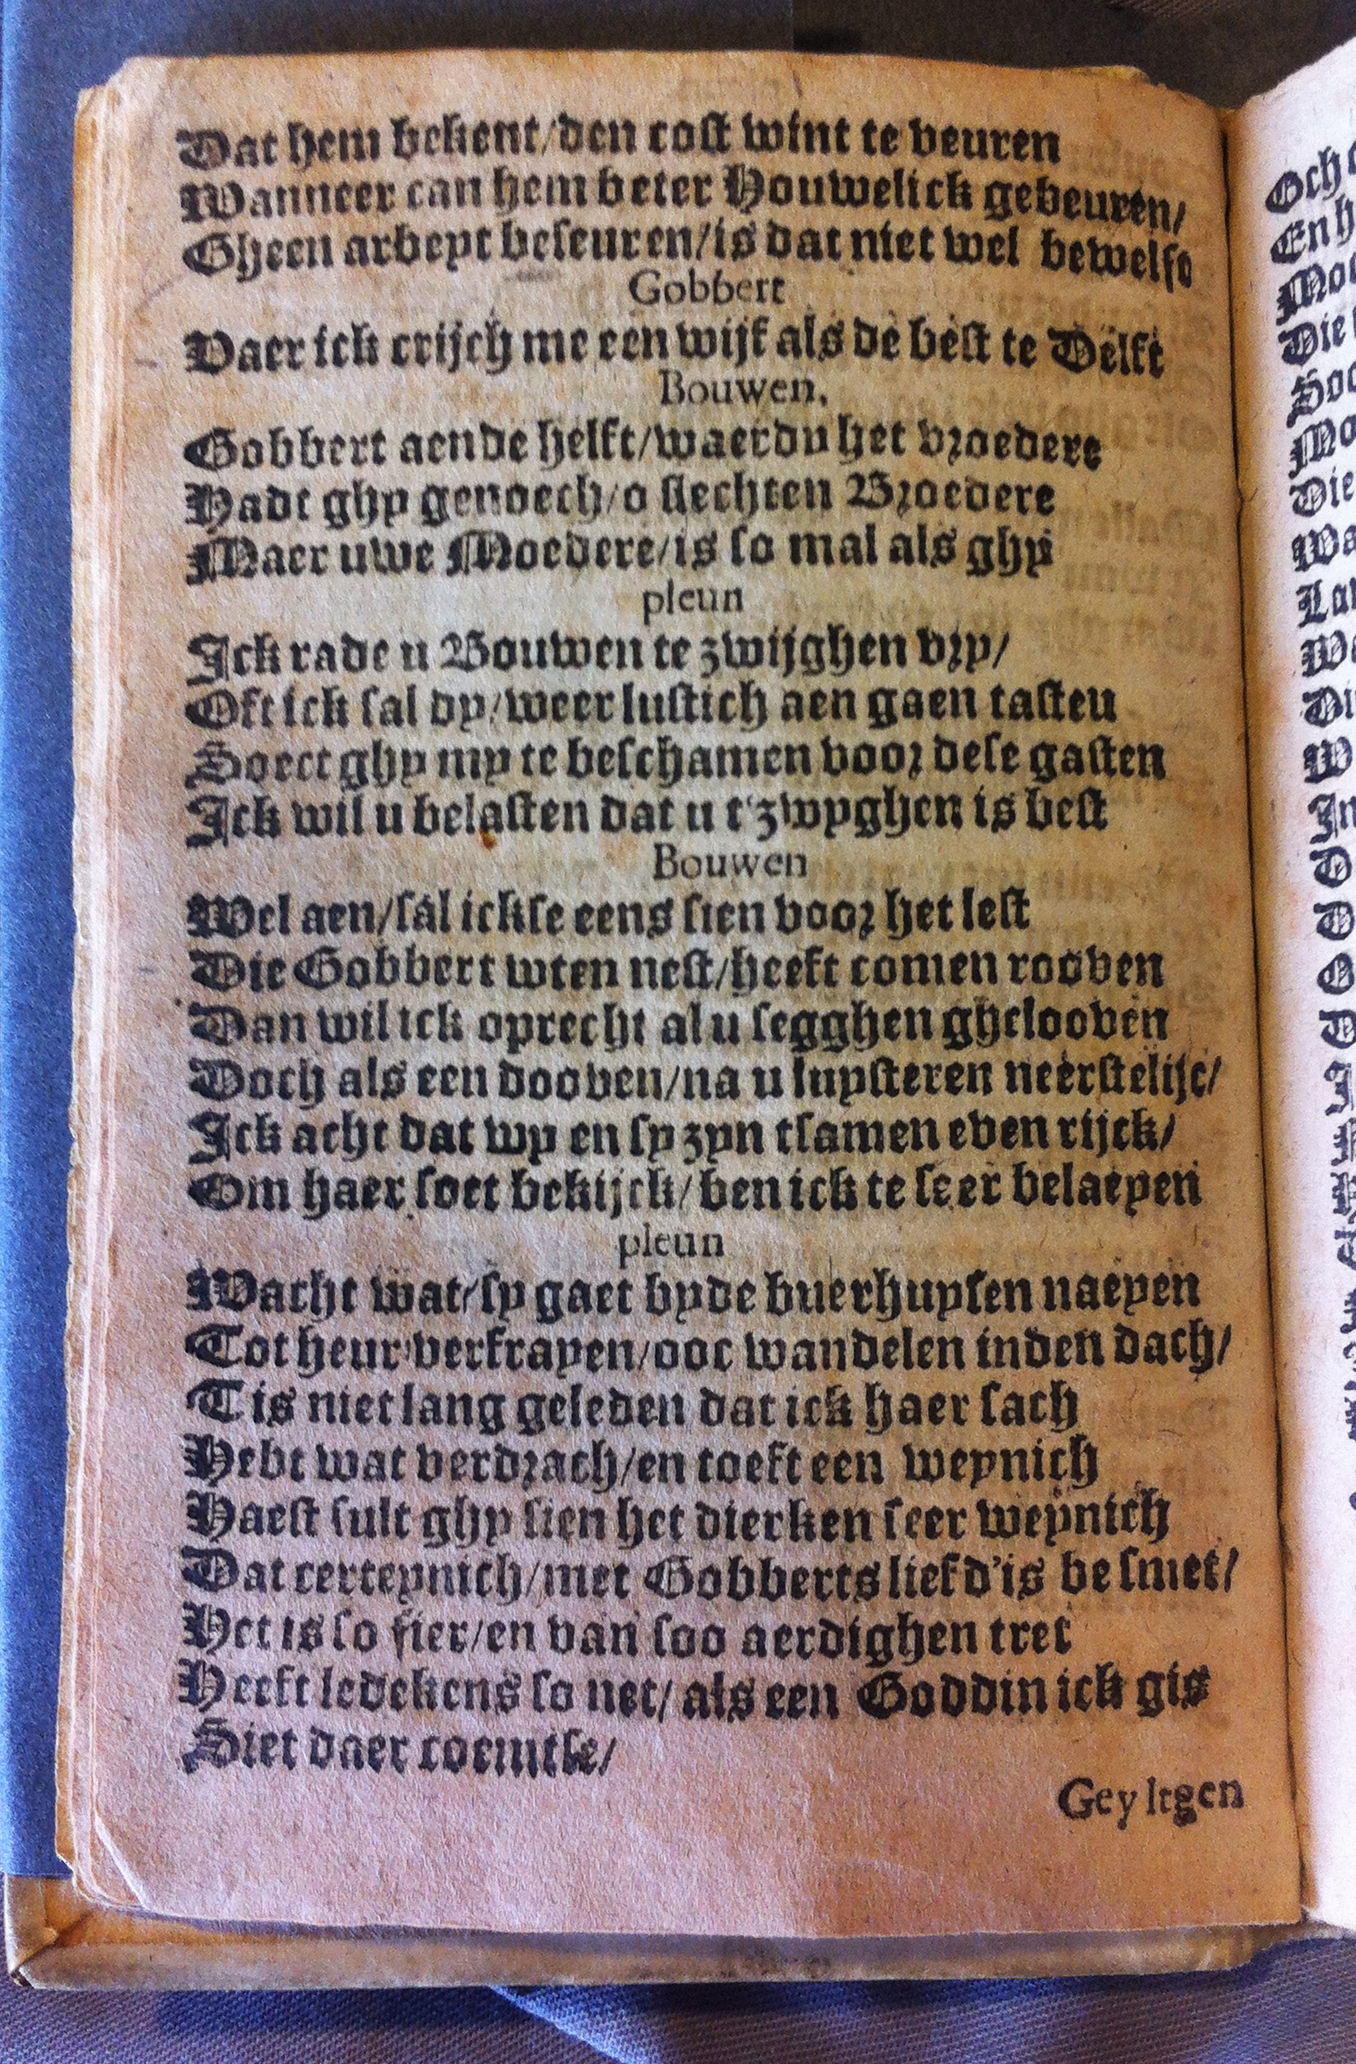 Dat hem bekent/den cost wint te veuren
Wanneer can hem beter Houwelick gebeuren/
Gheen arbeyt beseuren/is dat niet wel bewelft
Gobbert
Vaer ick crijch me een wijf als de best te Delft
Bouwen,
Gobbert aende helft/waerdu het vroedere
Hadt ghy genoech/o slechten Broedere
Maer uwe Moedere/is so mal als ghy
pleun
Ick rade u Bouwen te zwijghen vry/
Oft ick sal dy/weer lustich aen gaen tasteu
Soect ghy my te beschamen voor dese gasten
Ick wil u belasten dat u t'zwyghen is best
Bouwen
Wel aen/sal ickse eens sien voor het lest
Die Gobbert wten nest/heeft comen rooven
Dan wil ick oprecht al u segghen ghelooven
Doch als een dooven/na u luysteren neerstelijc/
Ick acht dat wy en sy zyn tsamen even rijck/
Om haer soet bekijck/ben ick te seer belaeyen
pleun
Wacht wat/sy gaet byde buerhuysen naeyen
Tot heur verfrayen/ooc wandelen inden dach/
Tis niet lang geleden dat ick haer sach
Hebt wat verdrach/en toeft een weynich
Haest sult ghy sien het dierken seer weynich
Dat certeynich/met Gobberts liefd'is besmet/
Het is so fier/en van soo aerdighen tret
Heeft ledekens so net/als een Goddin ick gis
Siet daer coemtse/
Geyltgen
Och
En h
Die
Die
Wa
Di
W
In
D
D